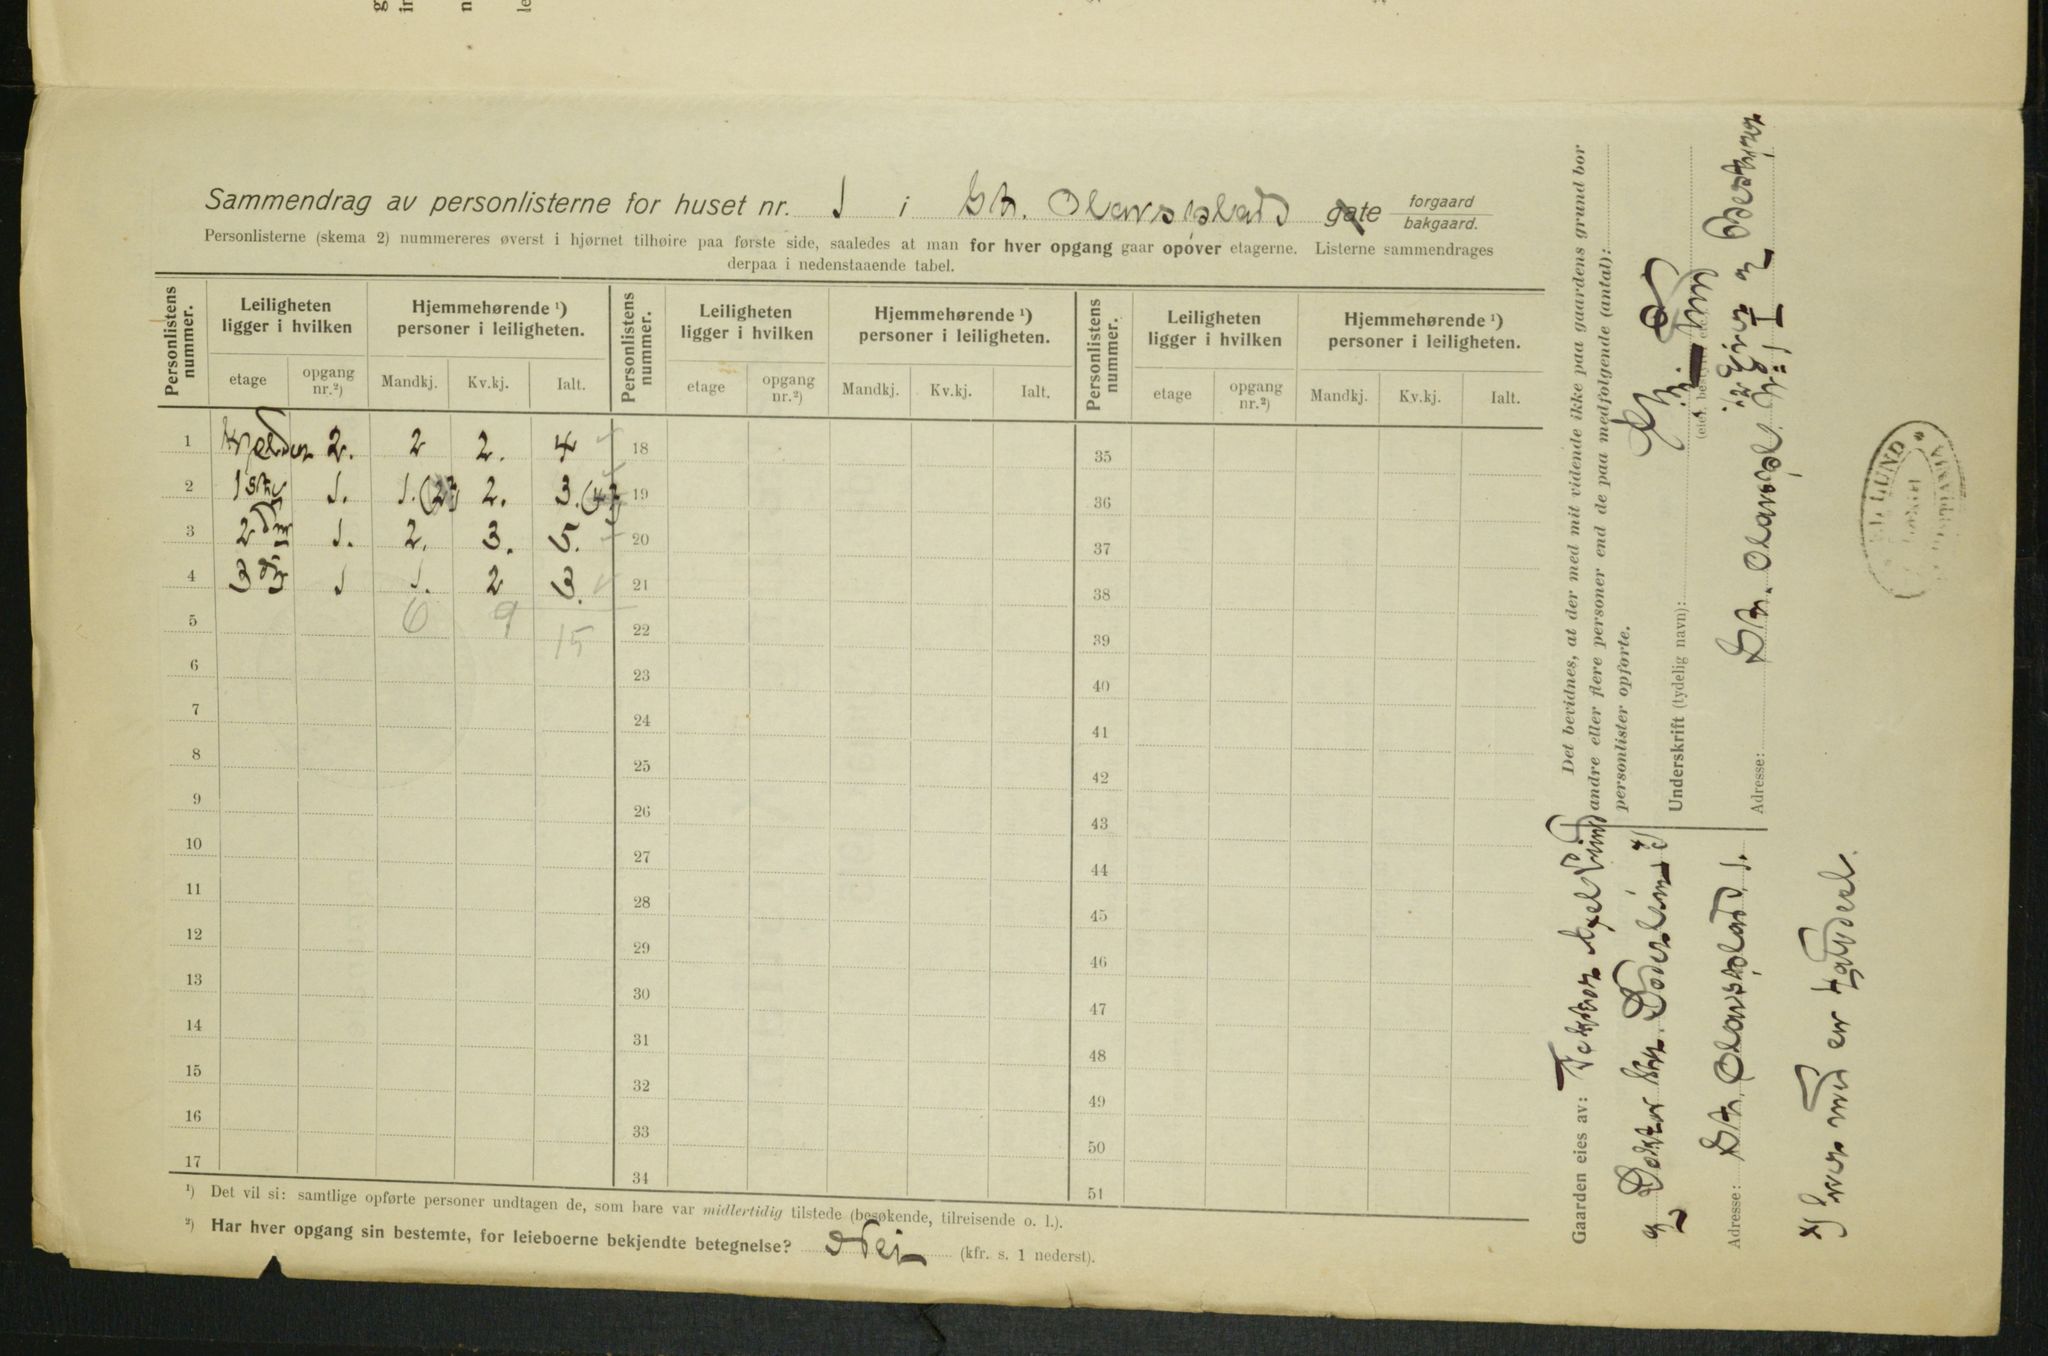 Sammendrag av personlisterne for huset nr. 1 i St. Olavsplads gate forgaard bakgaard.
Personlisterne (skema 2) nummereres øverst i hjørnet tilhøire paa første side, saaledes at man for hver opgang gaar opover etagerne. Listerne sammendrages
derpaa i nedenstaaende tabel.
Personlistens nummer. Leiligheten ligger i hvilken Hjemmehørende ¹) personer i leiligheten. Personlistens nummer. Leiligheten ligger i hvilken Hjemmehørende ¹) personer i leiligheten. Personlistens nummer. Leiligheten ligger i hvilken Hjemmehørende ¹) personer i leiligheten.
etage opgang nr.²) Mandkj. Kv.kj. Ialt. etage opgang nr.²) Mandkj. Kv.kj. Ialt. etage opgang nr.²) Mandkj. Kv.kj. Ialt.
1 Kjelder 2. 2 2. 4 18 35
2 1ste 1. 1. 2. 3. 19 36
3 2den 1. 2. 3. 5. 20 37
4 3die 1 1. 2 3. 21 38
5 6 9 15 22 39
6 23 40
7 24 41
8 25 42
9 26 43
10 27 44
11 28 45
12 29 46
13 30 47
14 31 48
15 32 49
16 33 50
17 34 51
¹) Det vil si: samtlige opførte personer undtagen de, som bare var midlertidig tilstede (besøkende, tilreisende o. l.).
²) Har hver opgang sin bestemte, for leieboerne bekjendte betegnelse? Nei (kfr. s. 1 nederst).
Gaarden eies av: Doktor Axel Lund
og Doktor Chr. Döderlein x)
Adresse: St. Olavsplads 1.
x) hver med en halvdel.
Det bevidnes, at der med mit vidende ikke paa gaardens grund bor
andre eller flere personer end de paa medfølgende (antal):
personlister opførte.
Underskrift (tydelig navn):
Adresse: St. Olavspl. No 1
LUND